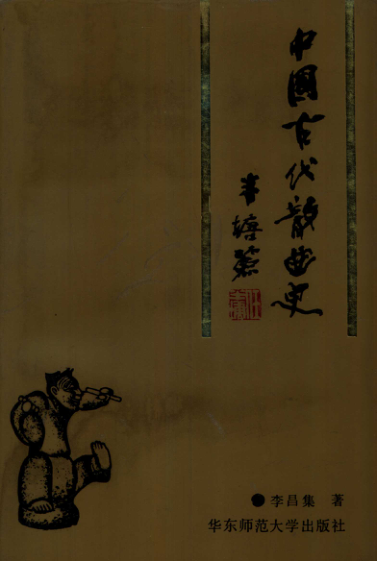 中國古代散曲史
半塘署
●李昌集 著
华东师范大学出版社